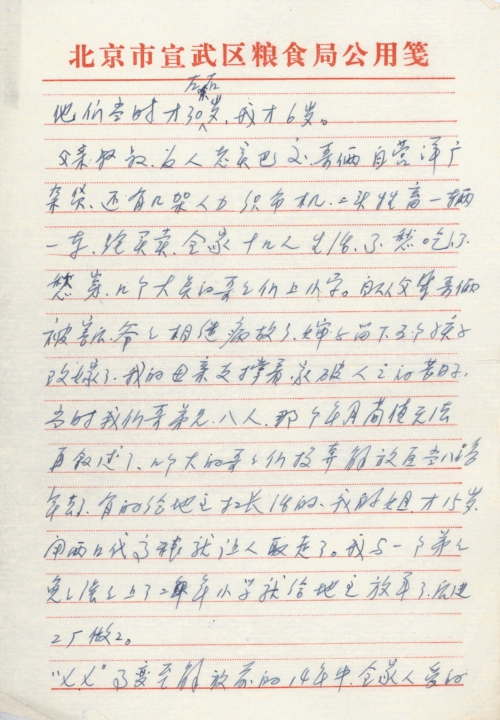 北京市宣武区粮食局公用笺
左右
他们当时才30岁，我才6岁。
父亲叔叔，为人忠实巴交，哥俩自营洋广
杂货，还有几架人力织布机，二头牲畜一辆
一车，络买卖，全家十几人生活，不愁吃不
愁穿，几个大点的哥哥们上小学。自从父辈哥俩
被害后，爷爷相继病故了，婶婶留下五个孩子
改嫁了，我的母亲支撑着，家破人亡的苦日子，
当时我们哥弟兄，八人，那个年月简直无法
再叙述了，几个大的哥哥们投奔解放区当八路
军去，有的给地主扛长活的，我的姐，才15岁，
用两口代高粱就让人取走了。我与一个弟弟
上了二年小学就给地主放羊了，后进
工厂做工。
"七七"事变至解放前的14年中，全家人受的